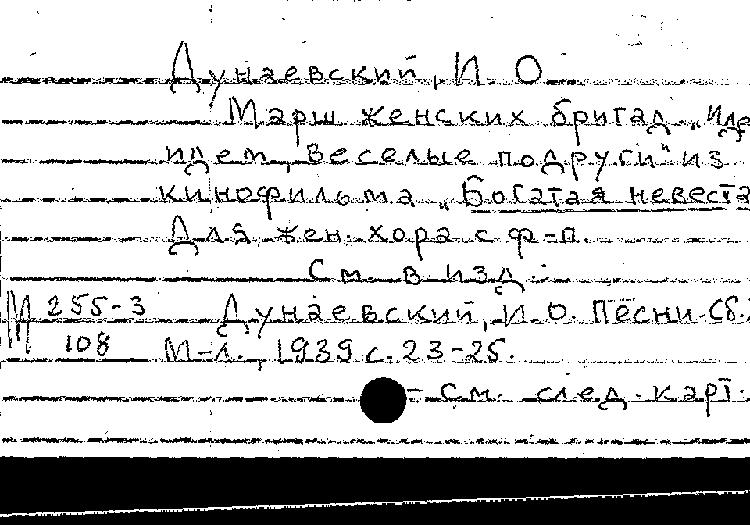 Дунаевский, И. О.
Марш женских бригад „Иде
идем, веселые подруги" из
кинофильма „Богатая невеста
Для жен. хора с ф-п.
См. в изд.:
М 255-3 Дунаевский, И. О. Песни. Сб.
108 М-Л., 1939 с. 23-25.
- см. след. карт.